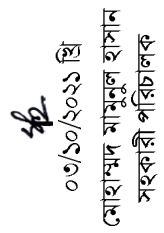 ০৩/১০/২০২১ খ্রি
মোহাম্মদ মামুনুল হাসান
সহকারী পরিচালক